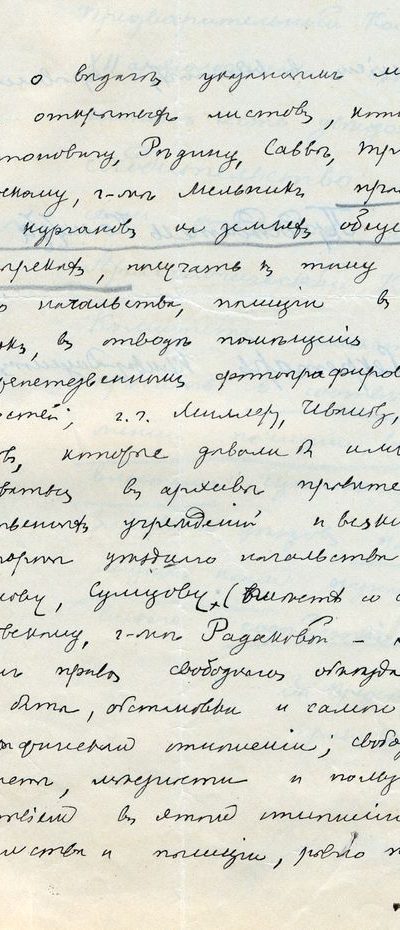 о выдачѣ указаннымъ
открытыхъ листовъ, кото
тоновичу, Рѣдину, Саввѣ, Три
скому, г-жѣ Мельникъ про
кургановъ на земляхъ общес
рекахъ, получать къ тому
начальства, полиціи въ
въ отводѣ помѣщенія
фотографиров
стей; г.г. Миллеру, Иванову,
въ, которые давали бы имъ
ваться въ архивы правите
венныхъ учрежденій и всяк
уѣзднаго начальства
кову, Сумцову (вмѣстѣ со с
вскому, г-жѣ Радаковой —
права свободнаго
быта, обстановки и самого
графическомъ отношеніи; свобо
мѣстности и пользо
въ этомъ отношеніи
льства и полиціи, равно